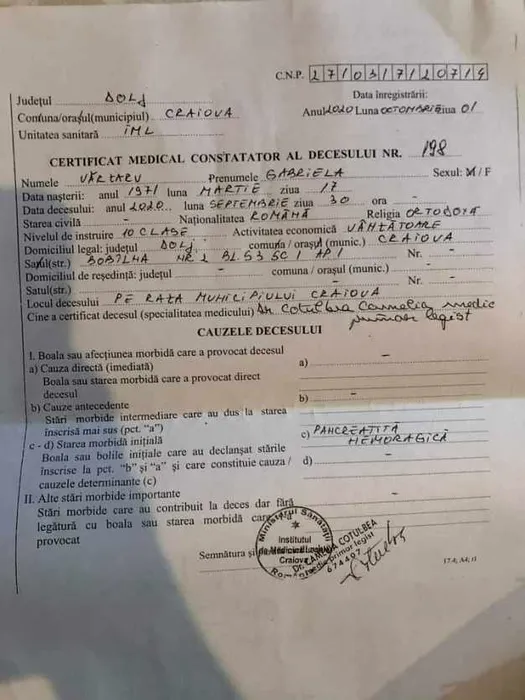 C.N.P. 2710317120714
Județul DOLJ
Data înregistrării:
Comuna/orașul(municipiul) CRAIOVA
Anul 2020 Luna OCTOMBRIE ziua 01
Unitatea sanitară IML
CERTIFICAT MEDICAL CONSTATATOR AL DECESULUI NR. 198
Numele VĂRTARU Prenumele GABRIELA Sexul: M / F
Data nașterii: anul 1971 luna MARTIE ziua 17
Data decesului: anul 2020 luna SEPTEMBRIE ziua 30 ora -
Starea civilă - Naționalitatea ROMÂNĂ Religia ORTODOXĂ
Nivelul de instruire 10 CLASE Activitatea economică VÂNZĂTOARE
Domiciliul legal: județul DOLJ comuna / orașul (munic.) CRAIOVA
Satul(str.) NR 2 BL.53 SC 1 AP 1 Nr. -
Domiciliul de reședință: județul - comuna / orașul (munic.) -
Satul(str.) - Nr. -
Locul decesului PE RAZA MUNICIPIULUI CRAIOVA
Cine a certificat decesul (specialitatea medicului) Dr Cotulbea Camelia medic
primar legist
CAUZELE DECESULUI
I. Boala sau afecțiunea morbidă care a provocat decesul
a) Cauza directă (imediată) a) -
Boala sau starea morbidă care a provocat direct
decesul
b) Cauze antecedente b) -
Stări morbide intermediare care au dus la starea
înscrisă mai sus (pct. "a")
c - d) Starea morbidă inițială c) PANCREATITĂ
HEMORAGICĂ
Boala sau bolile inițiale care au declanșat stările
înscrise la pct. "b" și "a" și care constituie cauza / d) -
cauzele determinante (c)
II. Alte stări morbide importante -
Stări morbide care au contribuit la deces dar fără
legătură cu boala sau starea morbidă care
provocat
Ministerul Sănătății
Institutul
de Medicină Legală
Craiova
Semnătura și
Dr. CAMELIA COTULBEA
medic primar legist
674407
17.4, A4, t1